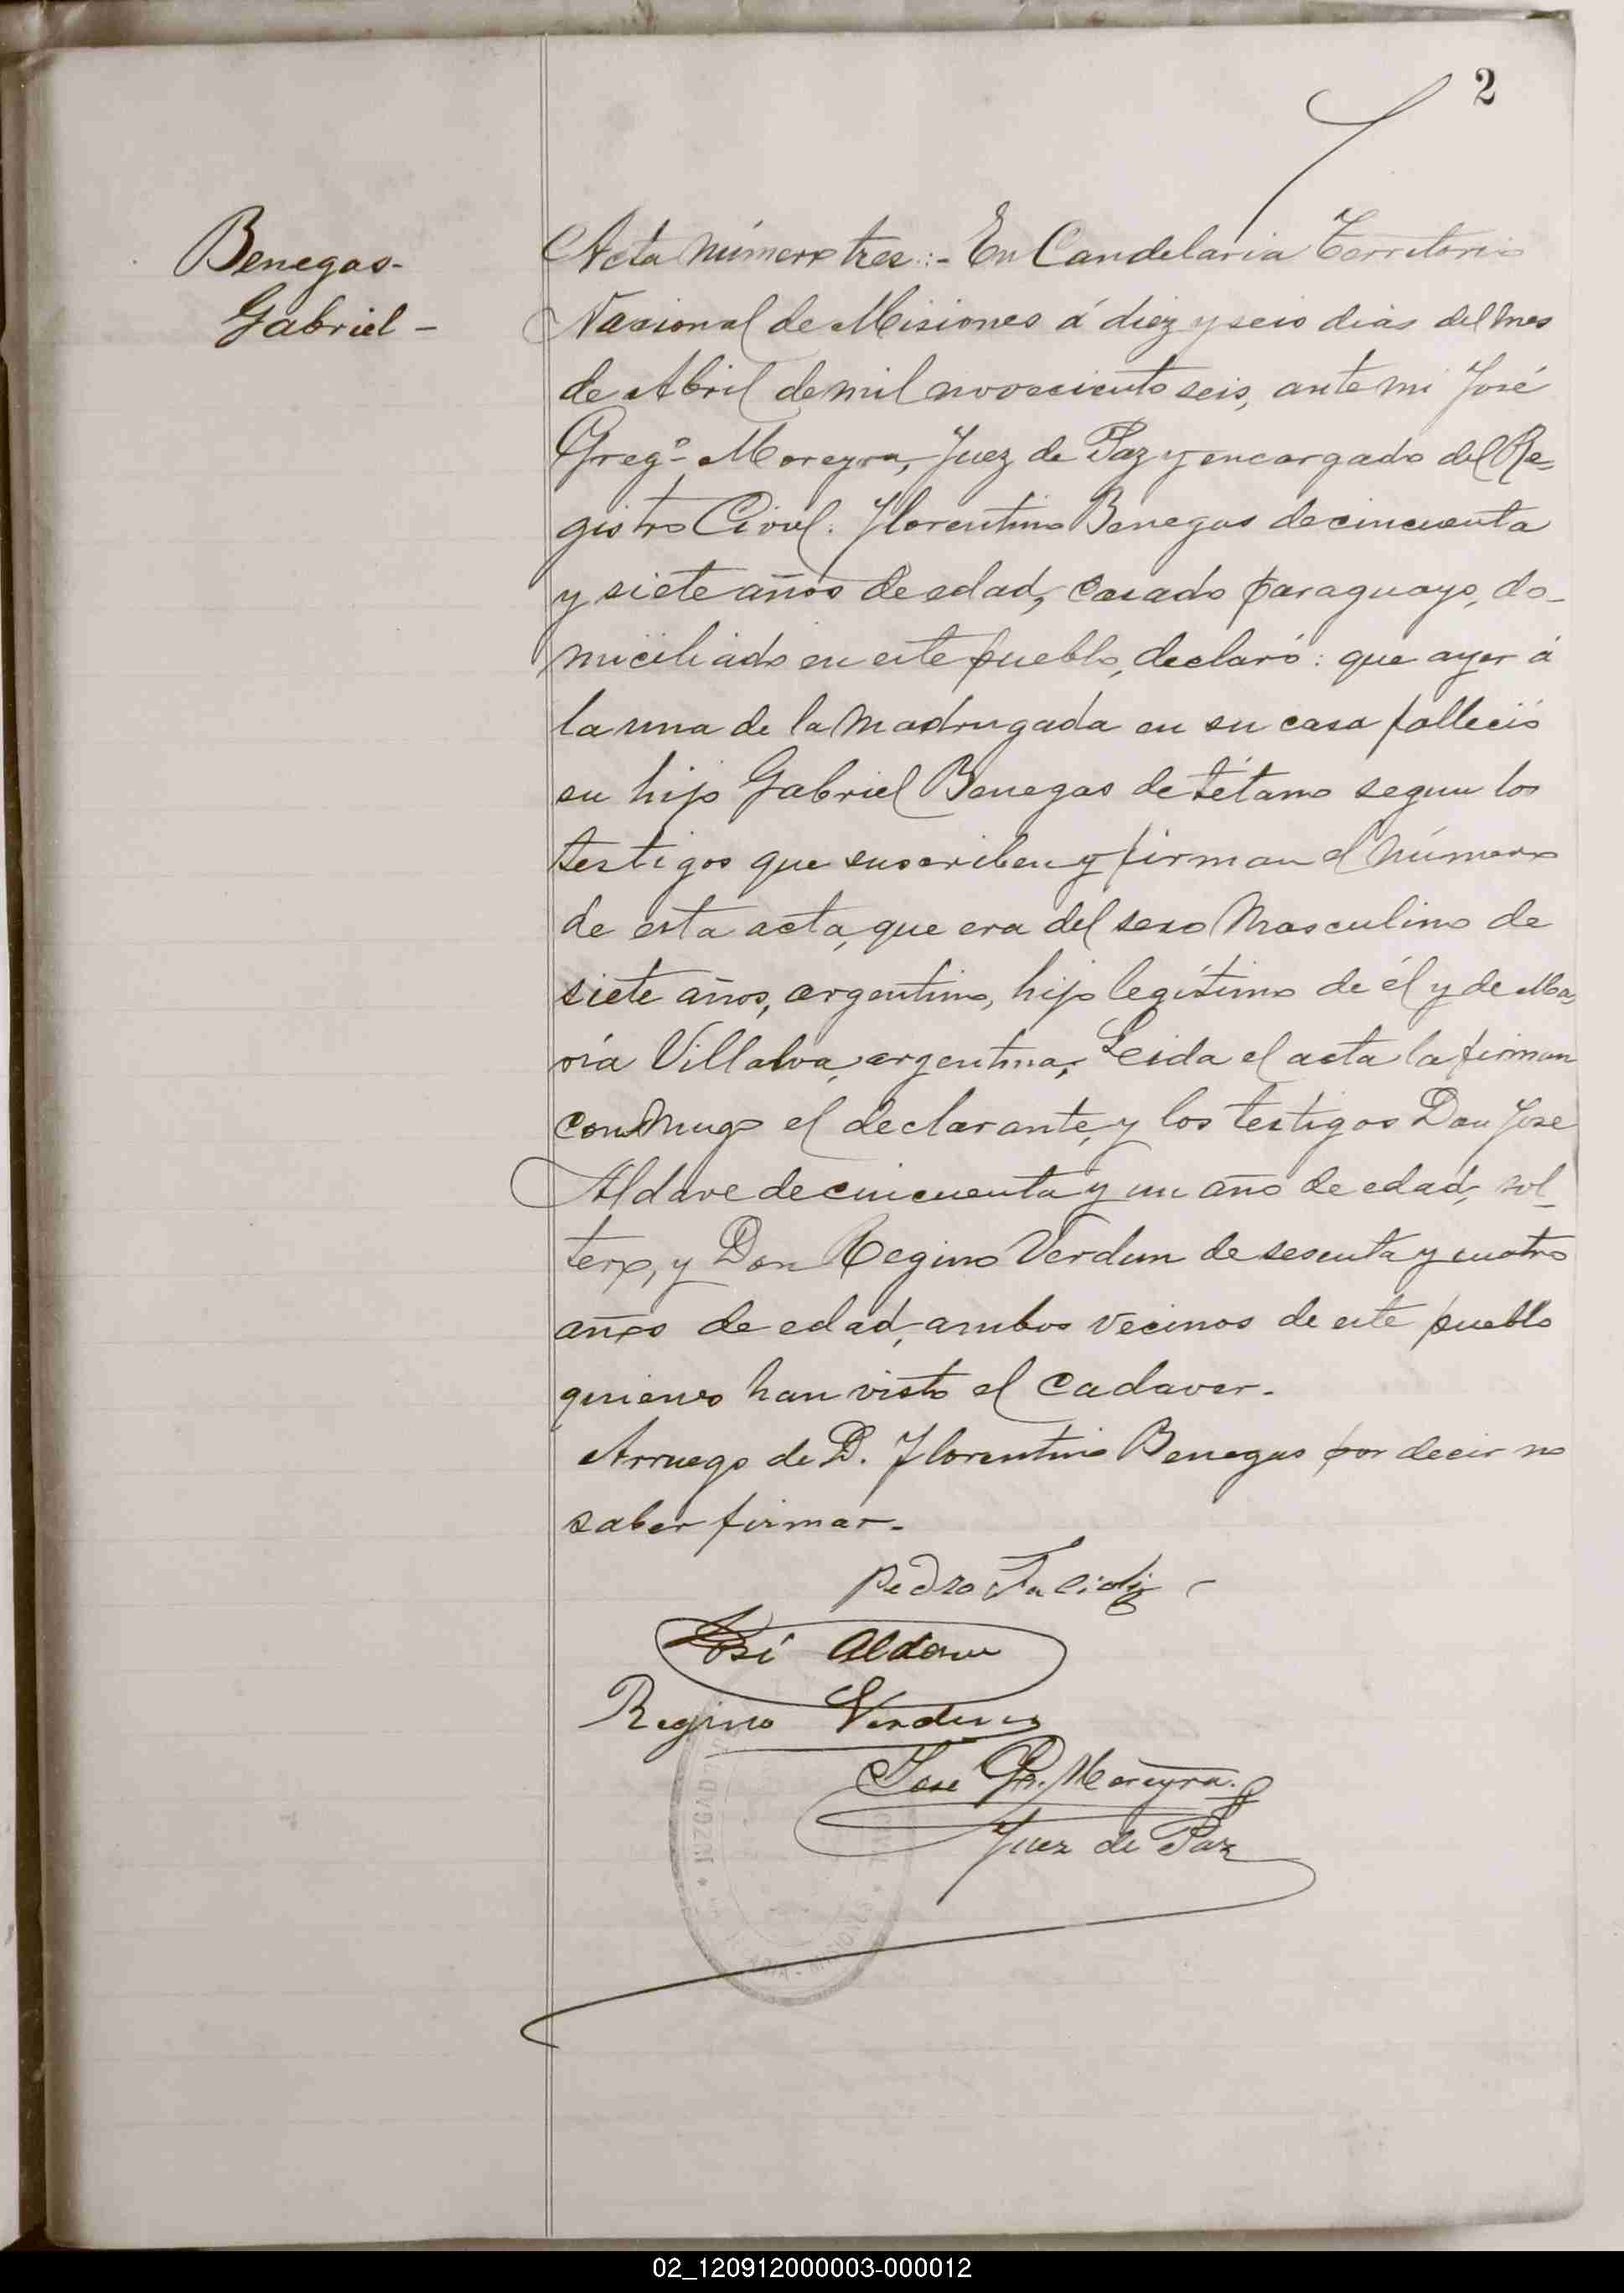 2
Benegas-
Gabriel-
Acta número tres:- En Candelaria Territorio
Nacional de Misiones á diez y seis dias del mes
de Abril de mil novecientos seis, ante mi José
Gregº Moreyra, Juez de Paz y encargado del Re=
gistro Civil. Florentino Benegas de cincuenta
y siete años de edad, casado paraguayo, do-
miciliado en este pueblo, declaró: que ayer á
la una de la madrugada en su casa falleció
su hijo Gabriel Benegas de tétano segun los
testigos que suscriben y firman el número
de esta acta, que era del sexo masculino de
siete años, argentino, hijo legítimo de él y de Ma=
ría Villalva, argentina; Leida el acta la firman
conmigo el declarante, y los testigos Don José
Aldave de cincuenta y un año de edad, sol-
tero, y Don Regino Verdun de sesenta y cuatro
años de edad, ambos vecinos de este pueblo
quienes han visto el cadaver-
Arruego de D. Florentino Benegas por decir no
saber firmar-
Pedro
José Aldave
Regino Verdun
José Gr. Moreyra
Juez de Paz
JUZGADO
MISIONES
02_120912000003-000012